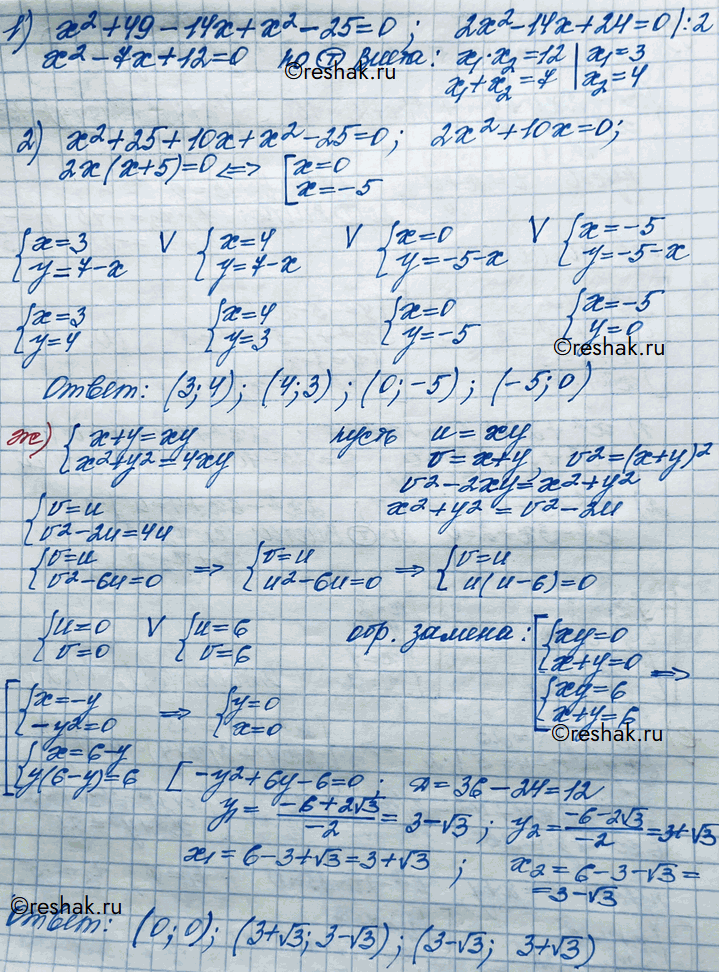 1) x²+49-14x+x²-25=0; 2x²-14x+24=0 |:2
x²-7x+12=0 по Ⓣ Виета: x₁·x₂=12 | x₁=3
x₁+x₂=7 | x₂=4
©reshak.ru
2) x²+25+10x+x²-25=0; 2x²+10x=0;
2x(x+5)=0 <=> [x=0
x=-5
{x=3 V {x=4 V {x=0 V {x=-5
y=7-x y=7-x y=-5-x y=-5-x
{x=3 {x=4 {x=0 {x=-5
y=4 y=3 y=-5 y=0
©reshak.ru
Ответ: (3;4); (4;3); (0;-5); (-5;0)
ж) {x+y=xy пусть u=xy
x²+y²=4xy v=x+y, v²=(x+y)²
v²-2xy=x²+y²
x²+y²=v²-2u
{v=u
v²-2u=4u
{v=u => {v=u => {v=u
v²-6u=0 u²-6u=0 u(u-6)=0
{u=0 V {u=6 обр. замена: [{xy=0
v=0 v=6 x+y=0 =>
{xy=6
x+y=6
©reshak.ru
[{x=-y => {y=0
-y²=0 x=0
{x=6-y
y(6-y)=6 [-y²+6y-6=0; D=36-24=12
y₁=(-6+2√3)/-2=3-√3; y₂=(-6-2√3)/-2=3+√3
x₁=6-3+√3=3+√3; x₂=6-3-√3=
=3-√3
©reshak.ru
Ответ: (0;0); (3+√3; 3-√3); (3-√3; 3+√3)